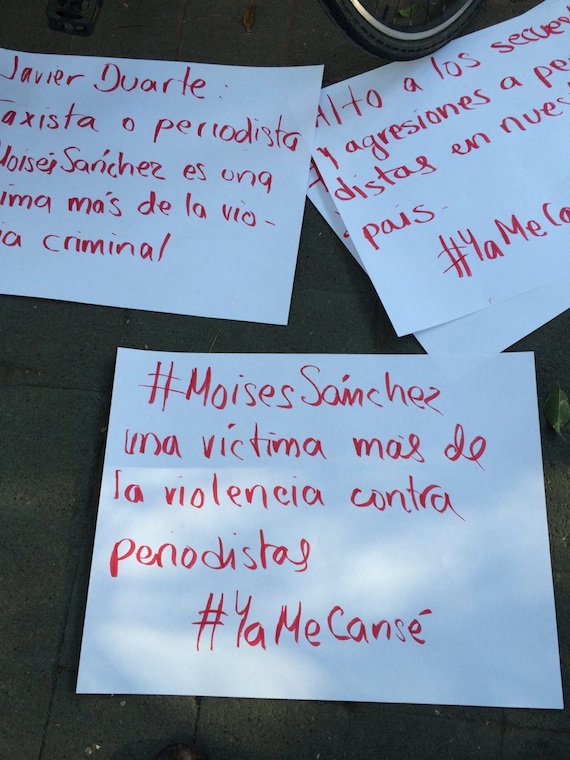 Javier Duarte:
taxista o periodista
Moisés Sánchez es una
ima más de la vio-
ia criminal
Alto a los secue
y agresiones a pe
distas en nues
país.
#YaMeCa
#MoisesSánchez
una víctima más de
la violencia contra
periodistas
#YaMeCansé